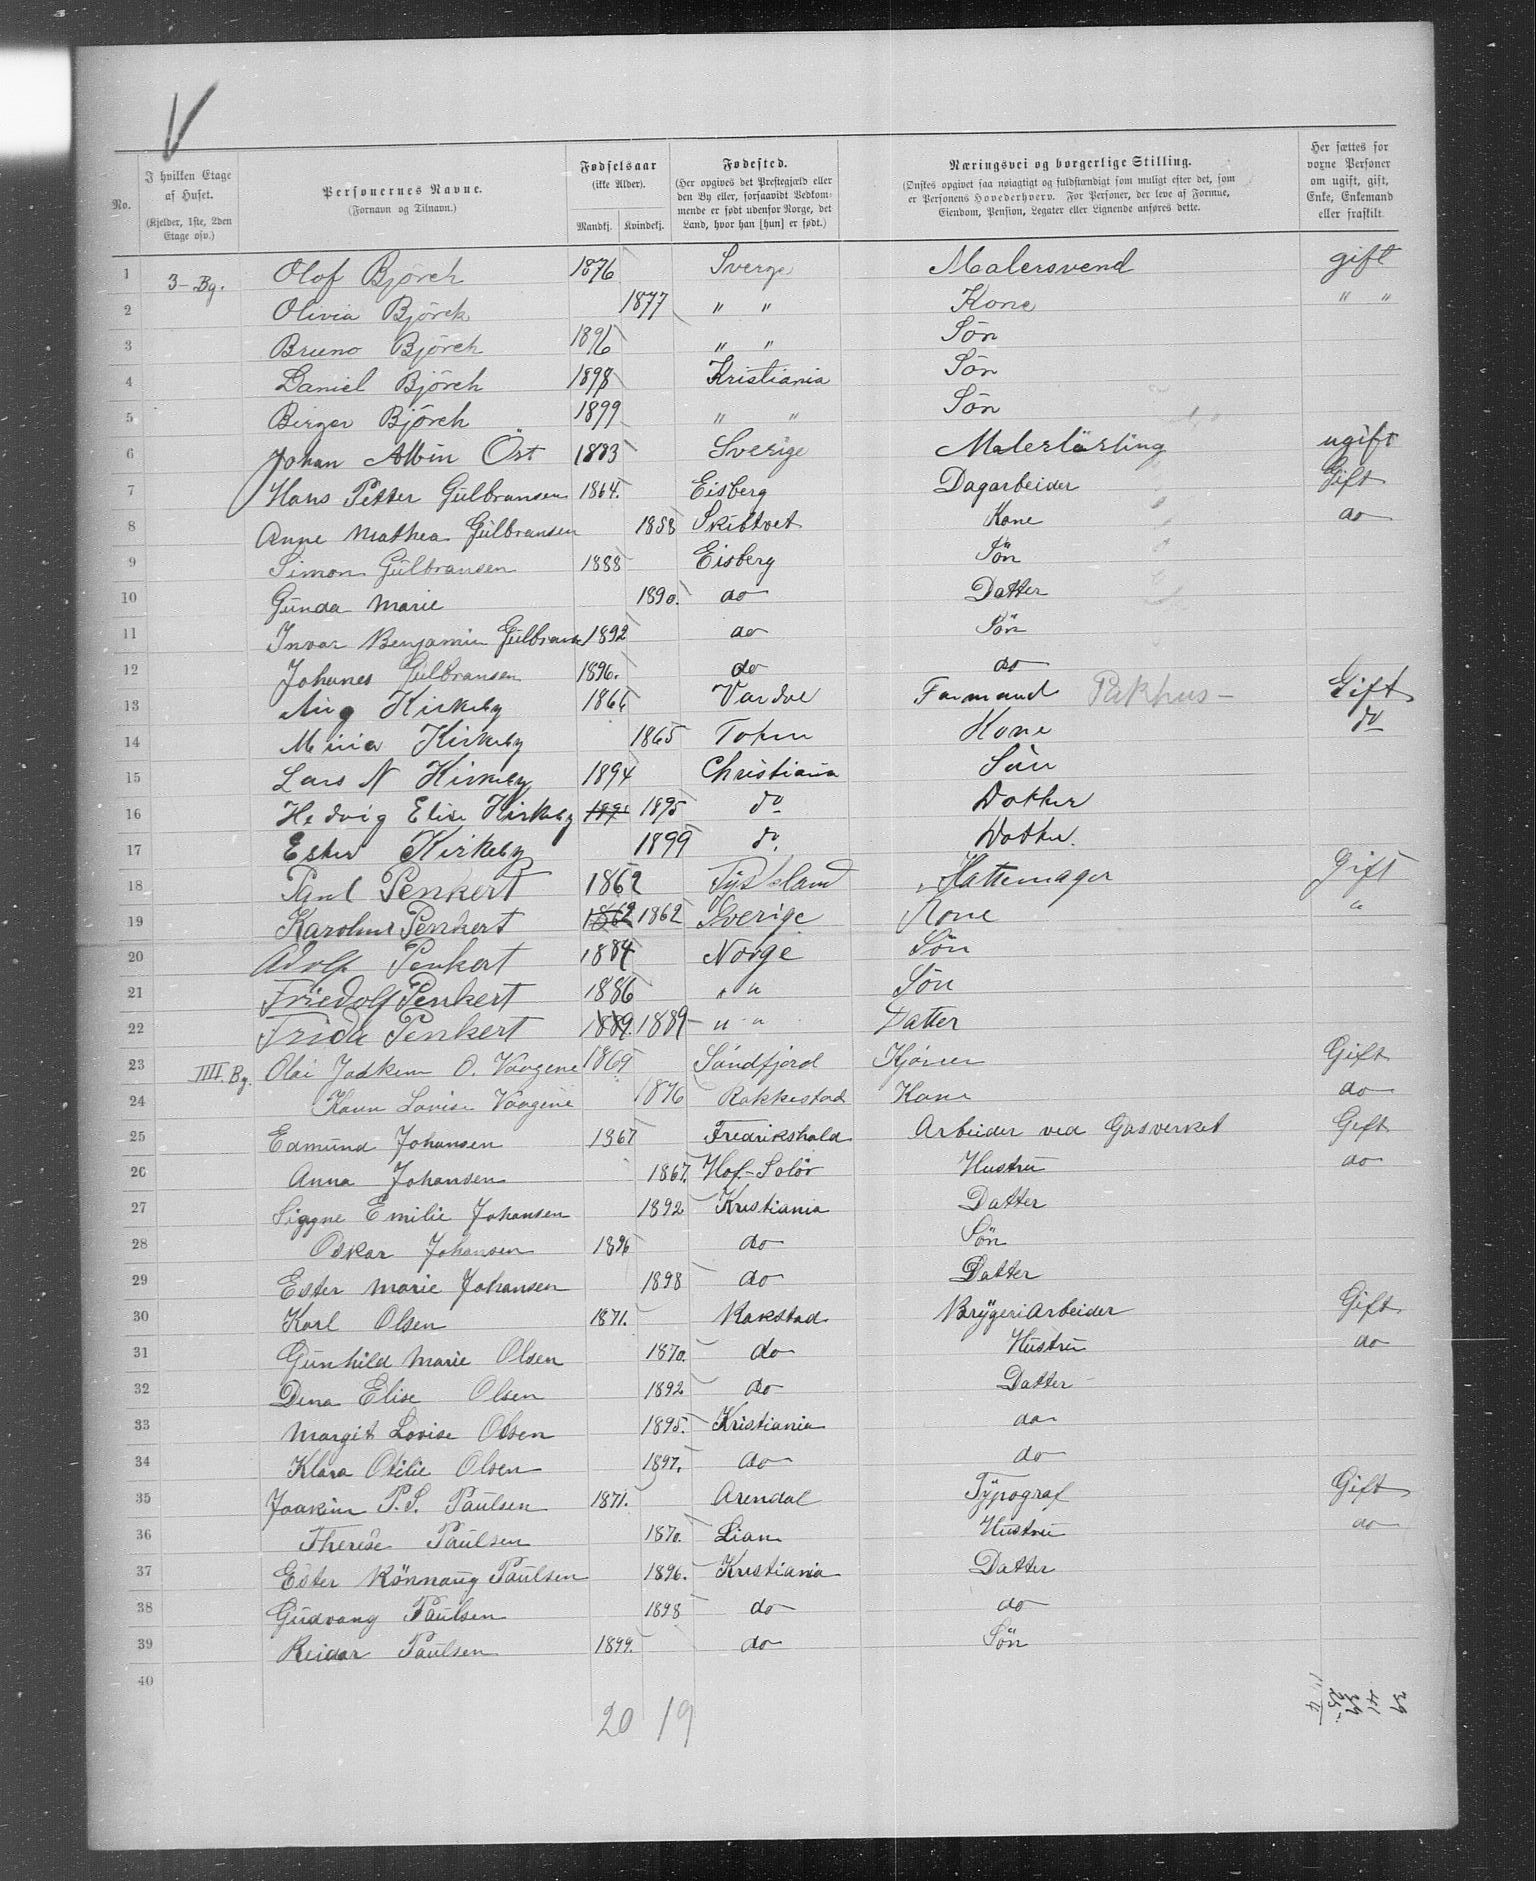 V
No.
I hvilken Etage af Huset. (Kjelder, 1ste, 2den Etage osv.)
Personernes Navne. (Fornavn og Tilnavn.)
Fødselsaar (ikke Alder). Mandkj. Kvindekj.
Fødested. (Her opgives det Prestegjæld eller den By eller, forsaavidt Vedkommende er født udenfor Norge, det Land, hvor han [hun] er født.)
Næringsvei og borgerlige Stilling. (Ønskes opgivet saa nøiagtigt og fuldstændigt som muligt efter det, som er Personens Hovederhverv. For Personer, der leve af Formue, Eiendom, Pension, Legater eller Lignende anføres dette.
Her sættes for voxne Personer om ugift, gift, Enke, Enkemand eller fraskilt.
1 3 By. Olof Björck 1876 Sverge Malersvend gift
2 Olivia Björck 1877 " " Kone " "
3 Bruno Björck 1896 " " Sön
4 Daniel Björck 1898 Kristiania Sön
5 Birger Björck 1899 " " Sön
6 Johan Albin Öst 1883 Sverige Malerlärling ugift
7 Hans Petter Gulbransen 1864. Eisberg Dagarbeider Gift
8 Anne Mathea Gulbransen 1858 Skibtvet Kone do
9 Simon Gulbransen 1888 Eisberg Sön
10 Gunda Marie 1890. do Datter
11 Invar Benjamin Gulbran 1892 do Sön
12 Johanes Gulbransen 1896. do do
13 Aug Kirkeby 1866 Vardve Formand Pakhus Gift
14 Kirkeby 1865 Toten Kone do
15 Lars N Kirkeby 1894 Christiania Sön
16 Hedvig Elise Kirkeby 1895 do Dotter
17 Ester Kirkeby 1899 do. Dotter.
18 Paul Penkert 1862 Tyskland Hattemager Gift
19 Karoline Penkert 1862 1862 Sverige Kone "
20 Adolf Penkert 1884 Norge Sön
21 Friedolf Penkert 1886 " " Sön
22 Frida Penkert 1889. 1889 " " Datter
23 IIII By. Olai O. Vaagene 1869 Söndfjord Kjörer Gift
24 Lovise Vaagene 1876 Rakkestad Kone do
25 Edmund Johansen 1867 Fredrikshald Arbeider ved Gasverket Gift
26 Anna Johansen 1867. Hof-Solör Hustru do
27 Siggne Emilie Johansen 1892 Kristiania Datter
28 Oskar Johansen 1896 do Sön
29 Ester Marie Johansen 1898 do Datter
30 Karl Olsen 1871. Rakstad Brygeri Arbeider Gift
31 Gunhild Marie Olsen 1870. do Hustru do
32 Dina Elise Olsen 1892 do Datter
33 Margit Lovise Olsen 1895. Kristiania do
34 Klara Otilie Olsen 1897. do do
35 Joakim P.S. Paulsen 1871. Arendal Typograf Gift
36 Therese Paulsen 1870. Lian Hustru do
37 Ester Rönnaug Paulsen 1896. Kristiania Datter
38 Gudvang Paulsen 1898 do do
39 Reidar Paulsen 1899. do Sön
40
20 19
39
41